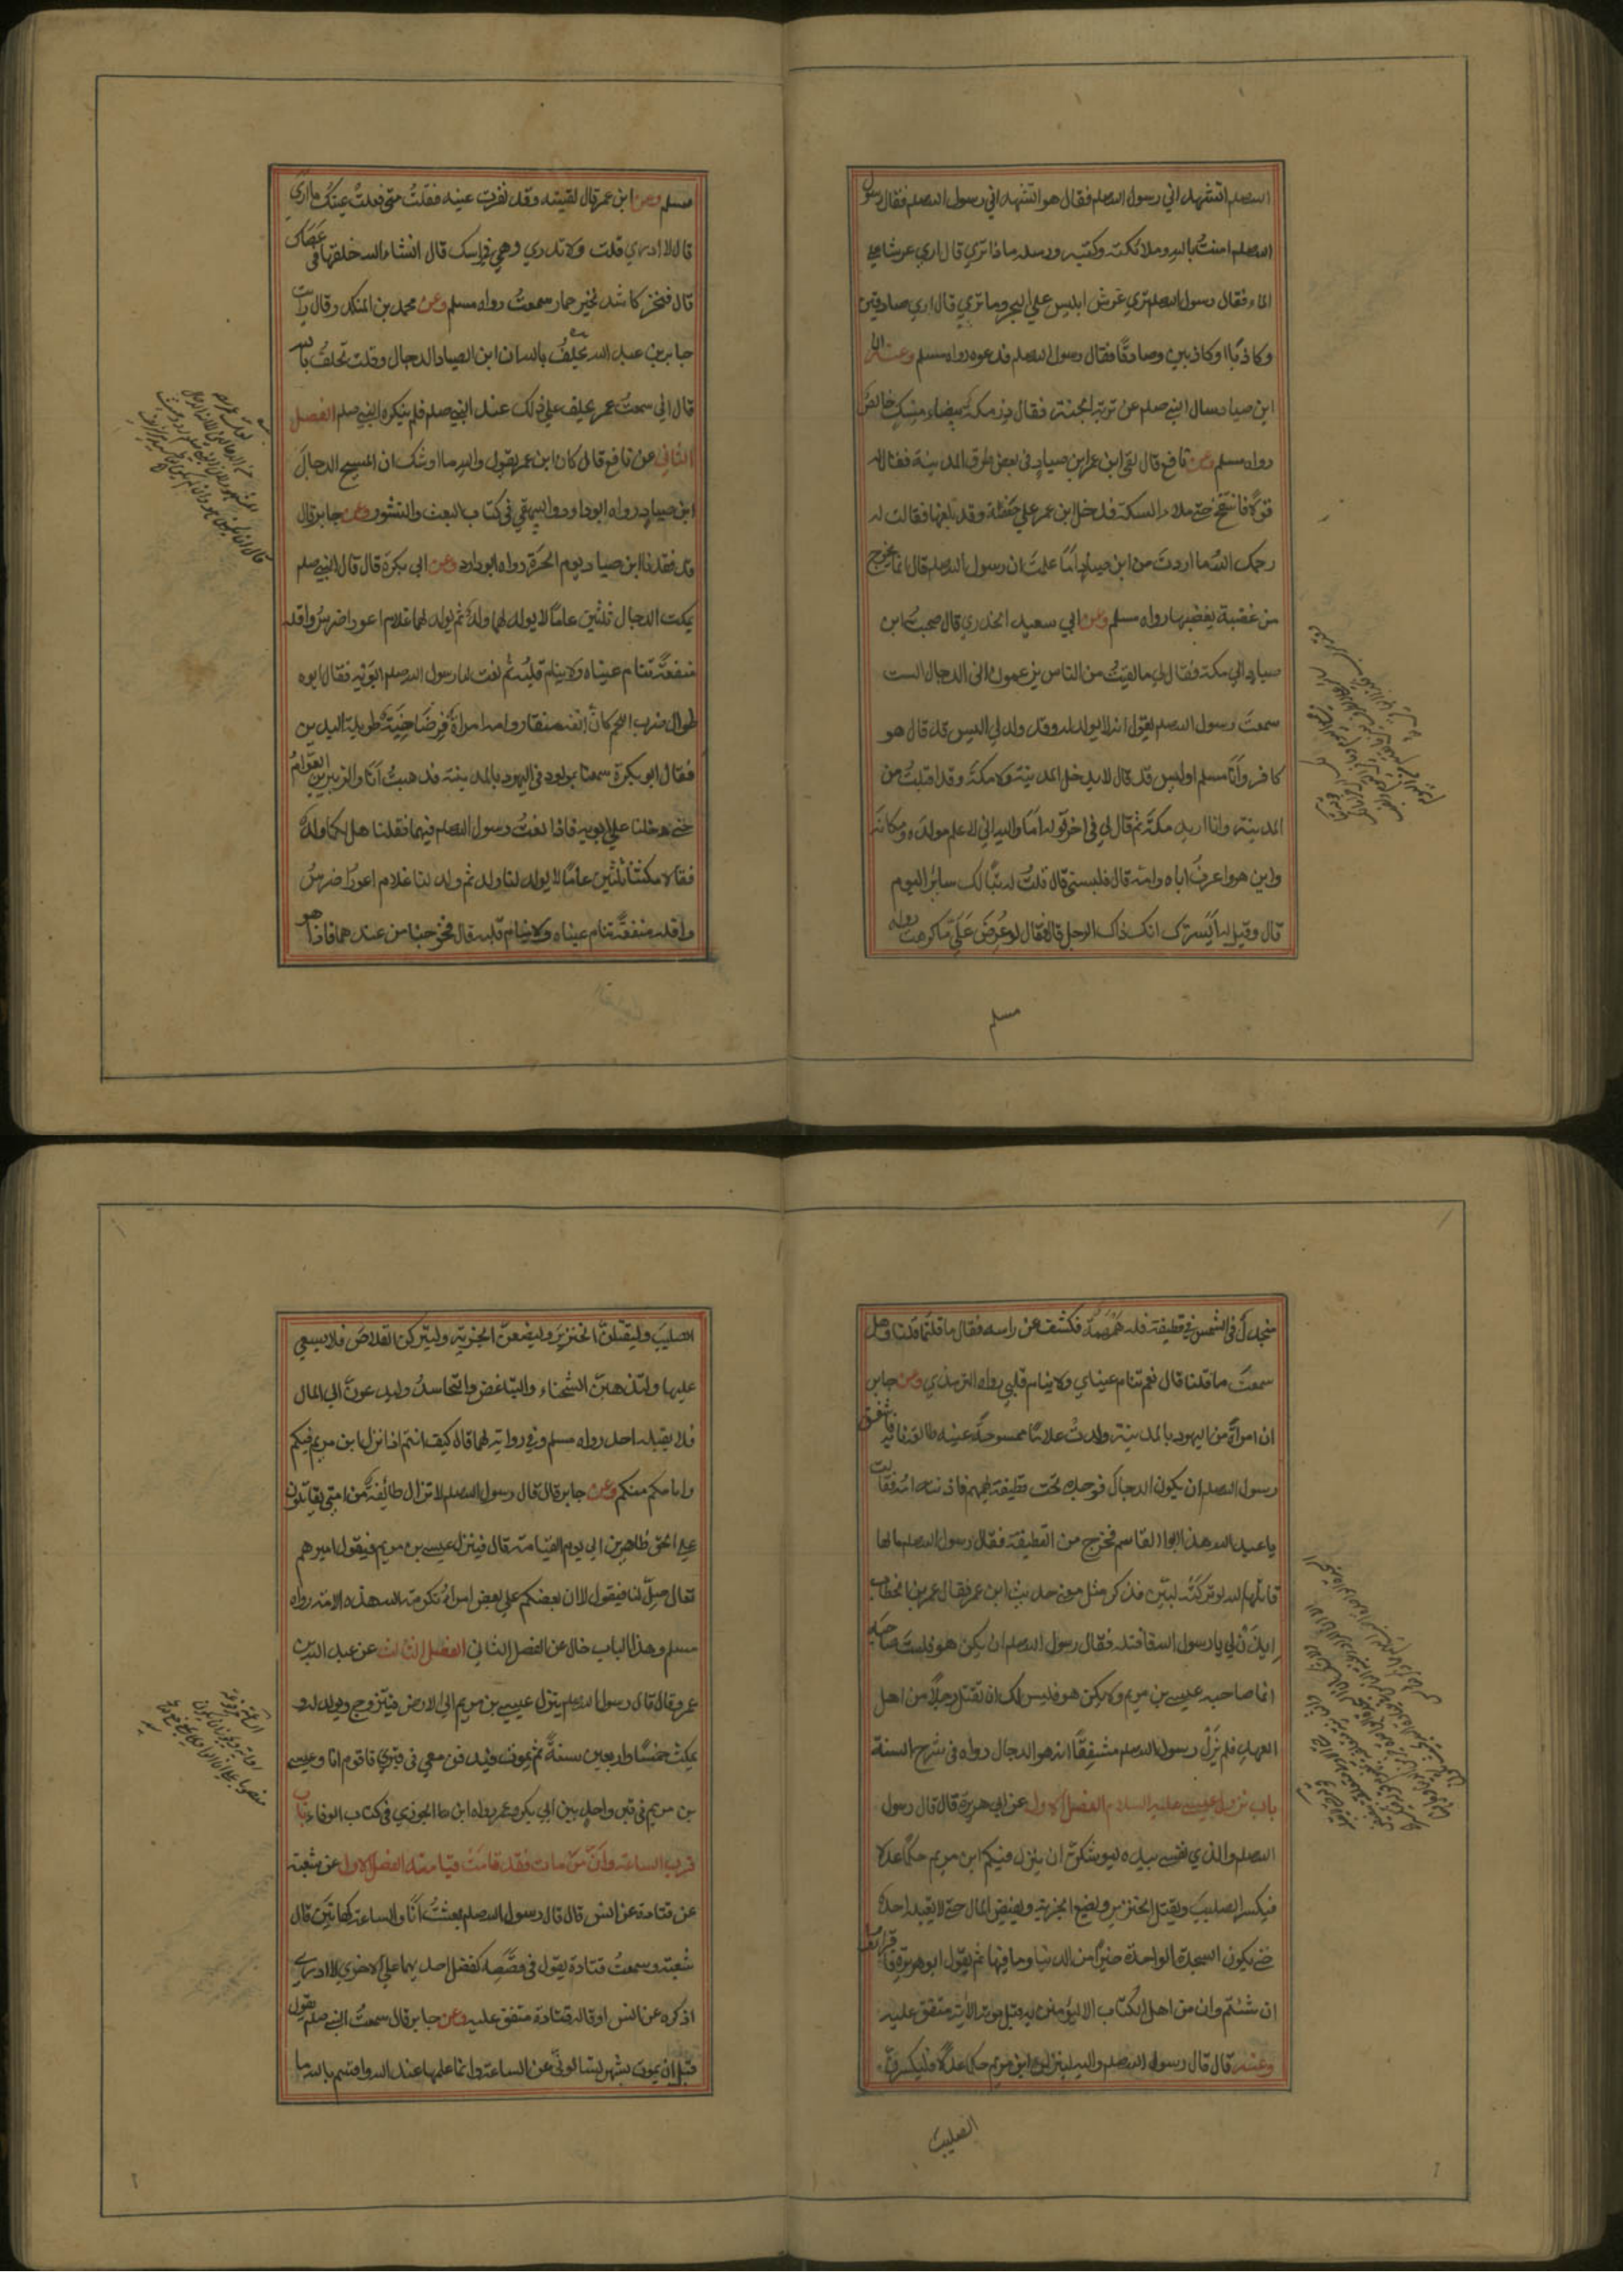 الله صلعم اتشهد اني رسول الله صلعم فقال هو اتشهد اني رسول الله صلعم فقال رسول
الله صلعم امنت بالله وملائكته وكتبه ورسله ماذا تري قال اري عرشا علي
الماء فقال رسول الله صلعم تري عرش ابليس علي البحر وما تري قال اري صادقين
وكاذبا او كاذبين وصادقا فقال رسول الله صلعم فدعوه رواه مسلم وعنه ان
ابن صياد سال النبي صلعم عن تربة الجنة فقال درمكة بيضاء مسك خالص
رواه مسلم وعن نافع قال لقي ابن عمر ابن صياد في بعض طرق المدينة فقال له
قولا فانتفخ حتي ملاء السكة فدخل ابن عمر علي حفصة وقد بلغها فقالت له
رحمك الله ما اردت من ابن صياد اما علمت ان رسول الله صلعم قال انما يخرج
من غضبة يغضبها رواه مسلم وعن ابي سعيد الخدري قال صحبت ابن
صياد الي مكة فقال لي ما لقيت من الناس يزعمون اني الدجال الست
سمعت رسول الله صلعم يقول انه لا يولد له وقد ولد لي اليس قد قال هو
كافر وانا مسلم اوليس قد قال لا يدخل المدينة ولا مكة وقد اقبلت من
المدينة وانا اريد مكة ثم قال لي في اخر قوله اما والله اني لاعلم مولده ومكانه
واين هو واعرف اباه وامه قال فلبسني قال قلت له تبا لك سائر اليوم
قال وقيل له ايسرك انك ذاك الرجل قال فقال لو عرض علي ما كرهت رواه
مسلم
مسلم وعن ابن عمر قال لقيته وقد نفرت عينه فقلت متي فعلت عينك ما اري
قال لا ادري قلت ولا تدري وهي في راسك قال انشاء الله خلقها في عصاك
قال فنخر كاشد نخير حمار سمعت رواه مسلم وعن محمد بن المنكدر قال رايت
جابر بن عبد الله يحلف بالله ان ابن الصياد الدجال وقلت تحلف بالله
قال اني سمعت عمر يحلف علي ذلك عند النبي صلعم فلم ينكره النبي صلعم الفصل
الثاني عن نافع قال كان ابن عمر يقول والله ما اوشك ان المسيح الدجال
ابن صياد رواه ابوداود والبيهقي في كتاب البعث والنشور وعن جابر قال
قد فقدنا ابن صياد يوم الحرة رواه ابوداود وعن ابي بكرة قال قال النبي صلعم
يمكث الدجال ثلثين عاما لا يولد لهما ولد ثم يولد لهما غلام اعور اضرس واقله
منفعة تنام عيناه ولا ينام قلبه ثم نعت لنا رسول الله صلعم ابويه فقال ابوه
طوال ضرب اللحم كان انفه منقار وامه امراة فرضاخية طويلة اليدين
فقال ابو بكرة سمعنا بمولود في اليهود بالمدينة فذهبت انا والزبير بن العوام
حتي دخلنا علي ابويه فاذا نعت رسول الله صلعم فيهما فقلنا هل لكما ولد
فقالا مكثنا ثلثين عاما لا يولد لنا ولد ثم ولد لنا غلام اعور اضرس
واقله منفعة تنام عيناه ولا ينام قلبه قال فخرجنا من عندهما فاذا هو
منجدل في الشمس في قطيفة فله همهمة فكشف عن راسه فقال ما قلتما قلنا وهل
سمعت ما قلنا قال نعم تنام عيناي ولا ينام قلبي رواه الترمذي وعن جابر
ان امراة من اليهود بالمدينة ولدت غلاما ممسوحة عينه طالعة نابه فاشفق
رسول الله صلعم ان يكون الدجال فوجده تحت قطيفة يهمهم فاذنته امه فقالت
يا عبد الله هذا ابوا القاسم فخرج من القطيفة فقال رسول الله صلعم ما لها
قاتلها الله لو تركته لبين فذكر مثل معني حديث ابن عمر فقال عمر بن الخطاب
ايذن لي يا رسول الله فاقتله فقال رسول الله صلعم ان يكن هو فليست صاحبه
انما صاحبه عيسي بن مريم ولا يكن هو فليس لك ان تقتل رجلا من اهل
العهد فلم يزل رسول الله صلعم مشفقا انه هو الدجال رواه في شرح السنة
باب نزول عيسي عليه السلام الفصل الاول عن ابي هريرة قال قال رسول
الله صلعم والذي نفسي بيده ليوشكن ان ينزل فيكم ابن مريم حكما عدلا
فيكسر الصليب ويقتل الخنزير ويضع الجزية ويفيض المال حتي لا يقبله احد
حتي يكون السجدة الواحدة خيرا من الدنيا وما فيها ثم يقول ابو هريرة فاقراوا
ان شئتم وان من اهل الكتاب الا ليؤمنن به قبل موته الاية متفق عليه
وعنه قال قال رسول الله صلعم والله لينزلن ابن مريم حكما عدلا فليكسرن
الصليب
الصليب وليقتلن الخنزير وليضعن الجزية وليتركن القلاص فلا يسعي
عليها ولتذهبن الشحناء والتباغض والتحاسد وليدعون الي المال
فلا يقبله احد رواه مسلم وفي رواية لهما قال كيف انتم اذا نزل ابن مريم فيكم
وامامكم منكم وعن جابر قال قال رسول الله صلعم لا تزال طائفة من امتي يقاتلون
علي الحق ظاهرين الي يوم القيامة قال فينزل عيسي بن مريم فيقول اميرهم
تعال صل لنا فيقول لا ان بعضكم علي بعض امراء تكرمة الله هذه الامة رواه
مسلم وهذا الباب خال عن الفصل الثاني الفصل الثالث عن عبد الله بن
عمرو قال قال رسول الله صلعم ينزل عيسي بن مريم الي الارض فيتزوج ويولد له و
يمكث خمسا واربعين سنة ثم يموت فيدفن معي في قبري فاقوم انا وعيسي
بن مريم في قبر واحد بين ابي بكر وعمر رواه ابن الجوزي في كتاب الوفاء باب
قرب الساعة وان من مات فقد قامت قيامته الفصل الاول عن شعبة
عن قتادة عن انس قال قال رسول الله صلعم بعثت انا والساعة كهاتين قال
شعبة وسمعت قتادة يقول في قصصه كفضل احديهما علي الاخري فلا ادري
اذكره عن انس او قاله قتادة متفق عليه وعن جابر قال سمعت النبي صلعم يقول
قبل ان يموت بشهر لسالوني عن الساعة وانما علمها عند الله واقسم بالله ما